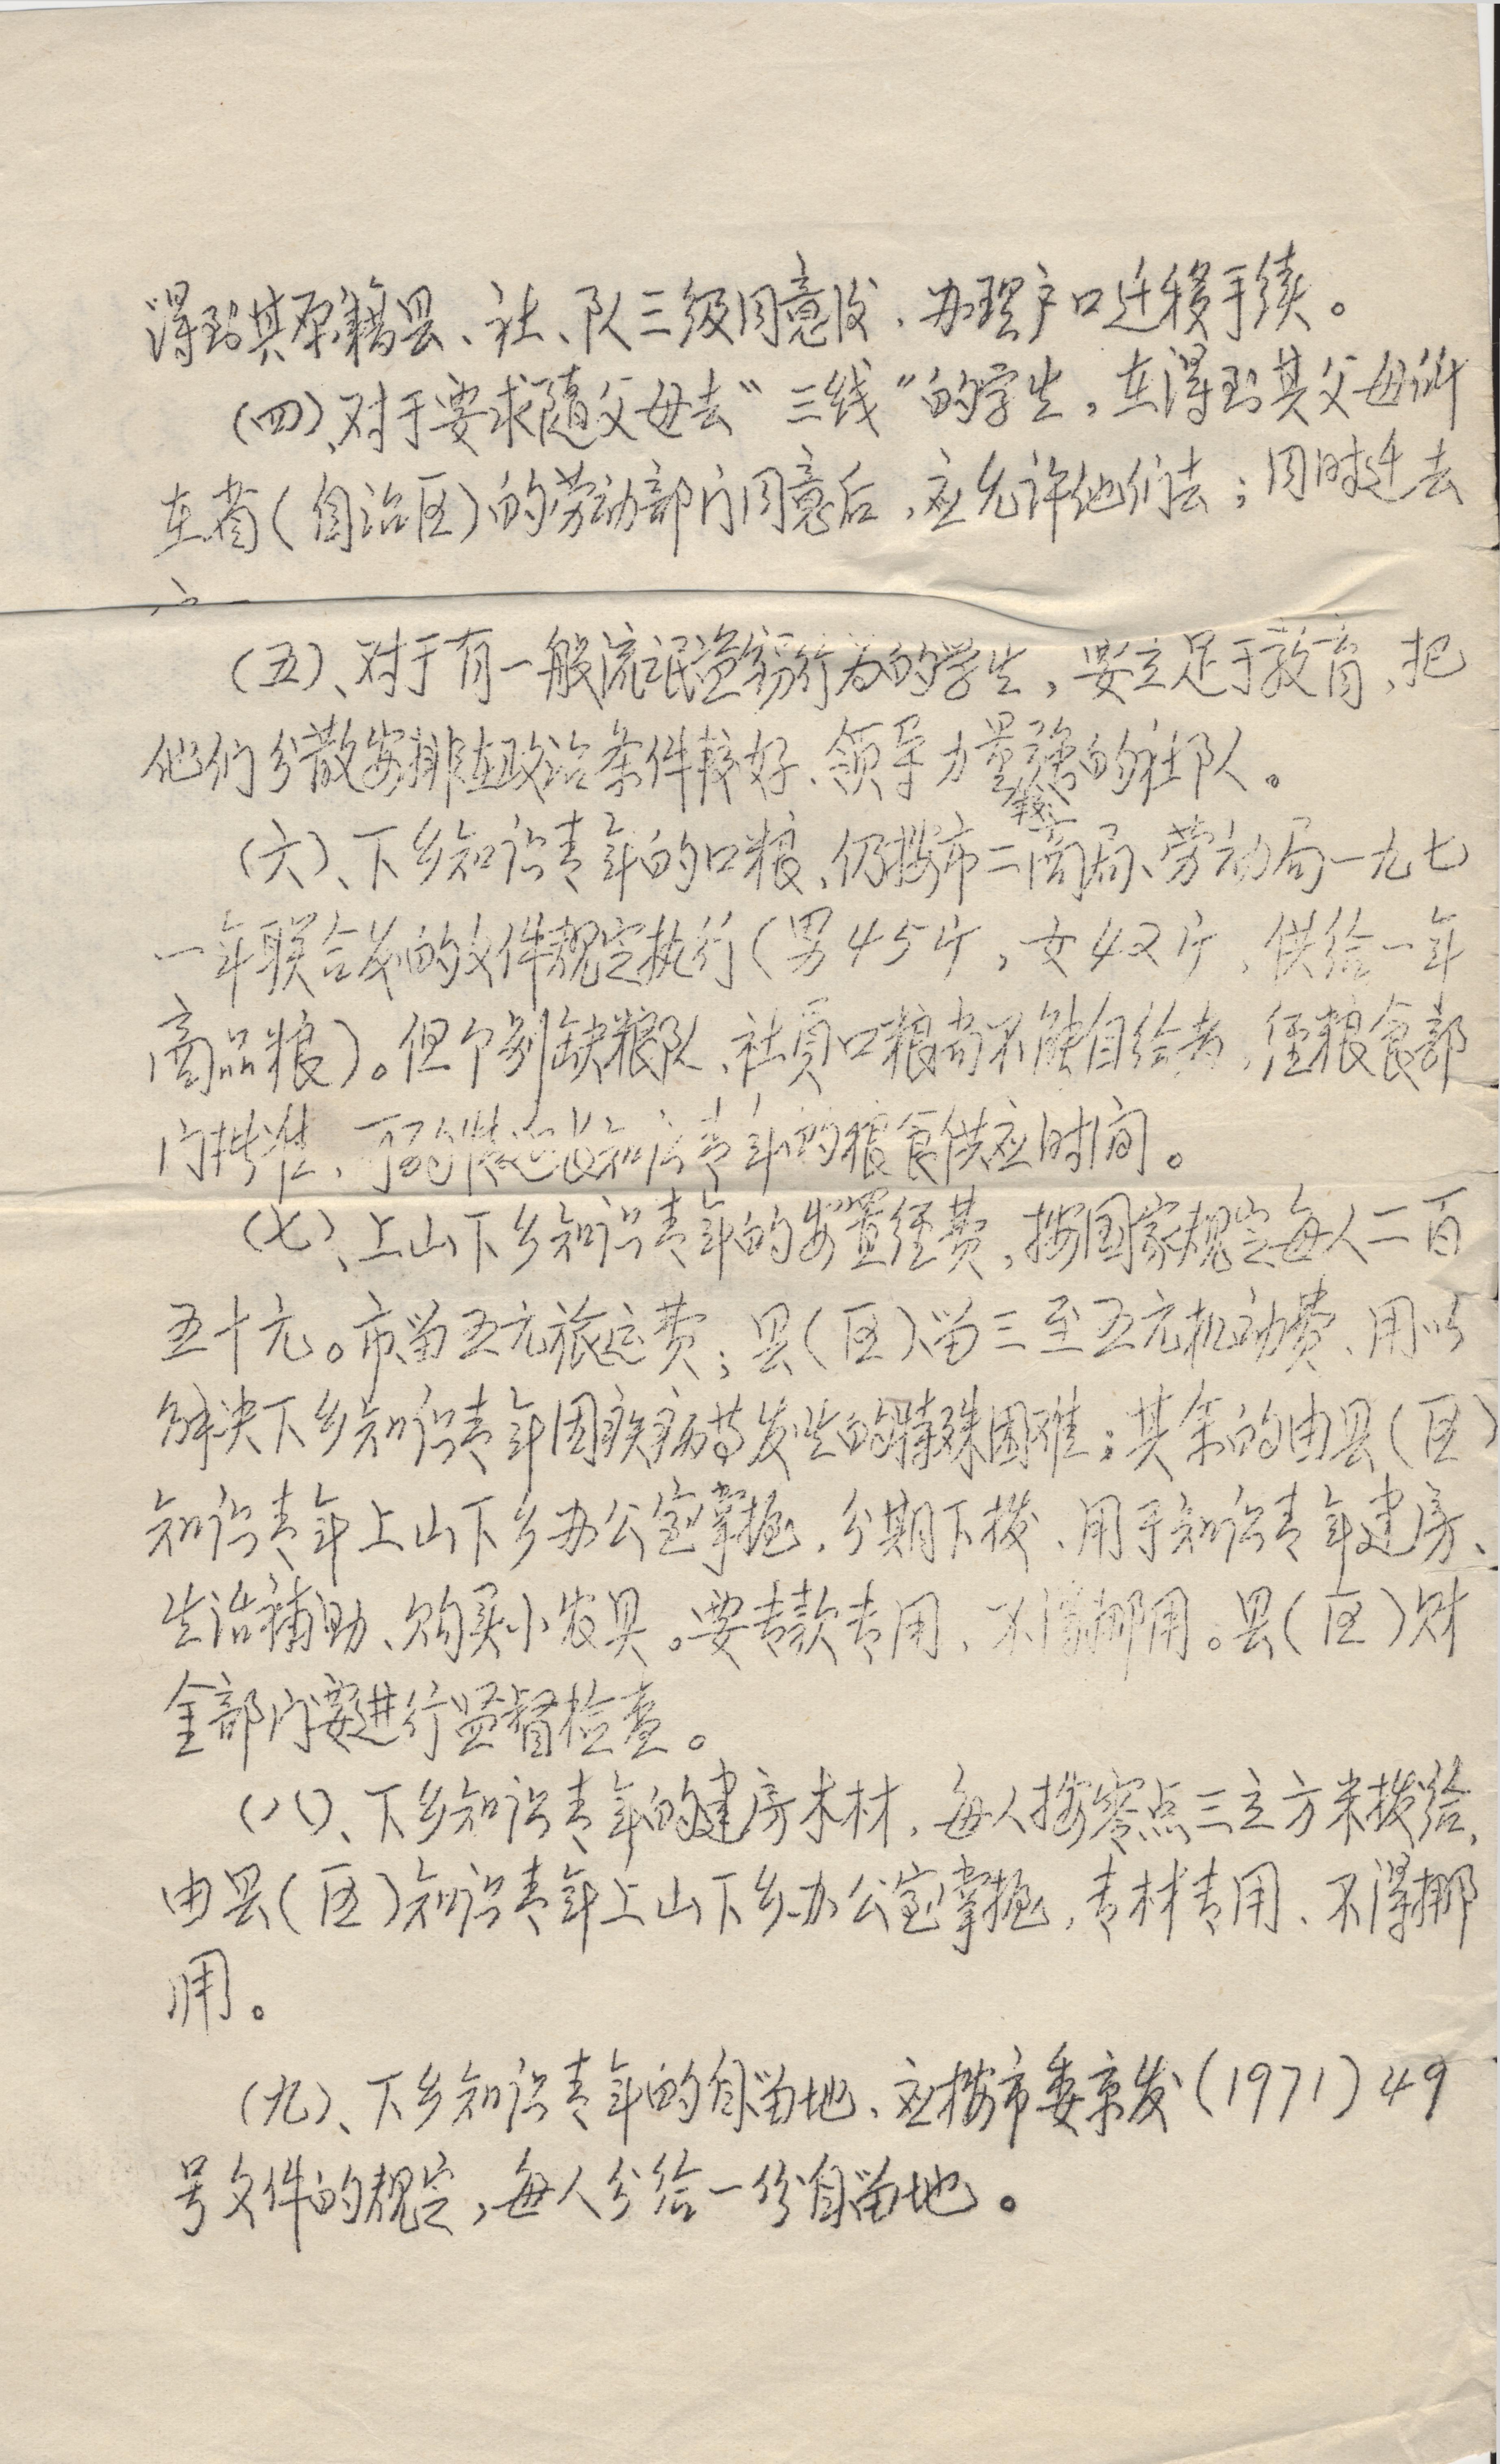 得到其原籍县、社、队三级同意后，办理户口迁移手续。
(四)、对于要求随父母去“三线”的学生，在得到其父母所
在省(自治区)的劳动部门同意后，应允许他们去；同时迁去
户口
(五)、对于有一般流氓盗窃行为的学生，要立足于教育，把
他们分散安排在政治条件较好、领导力量强的社队。
较
(六)、下乡知识青年的口粮，仍按市二商局、劳动局一九七
一年联合发的文件规定执行(男45斤，女42斤，供给一年
商品粮)。但个别缺粮队，社员口粮尚不能自给者，经粮食部
门批准，可酌情延长知识青年的粮食供应时间。
(七)、上山下乡知识青年的安置经费，按国家规定每人二百
五十元。市留五元旅运费；县(区)留三至五元机动费，用以
解决下乡知识青年因疾病等发生的特殊困难；其余的由县(区)
知识青年上山下乡办公室掌握，分期下拨，用于知识青年建房、
生活补助、购买小农具。要专款专用，不得挪用。县(区)财
金部门要进行监督检查。
(八)、下乡知识青年的建房木材，每人按零点三立方米拨给，
由县(区)知识青年上山下乡办公室掌握，专材专用，不得挪
用。
(九)、下乡知识青年的自留地，应按市委京发(1971)49
号文件的规定，每人分给一份自留地。